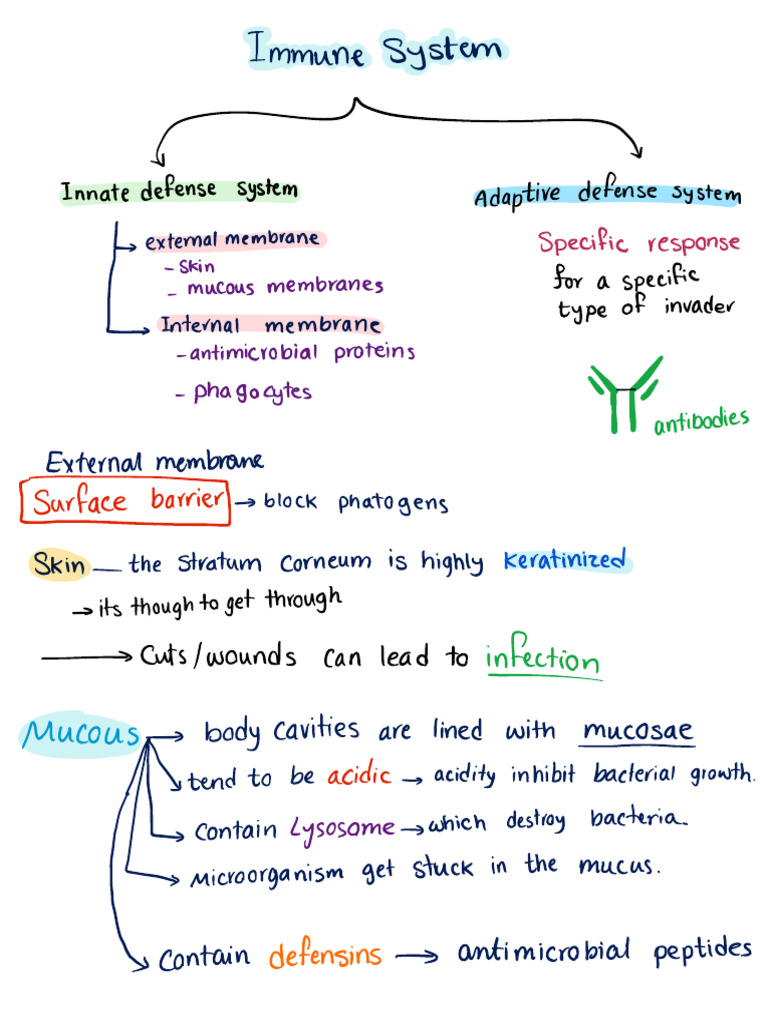 Immune System
Innate defense system
Adaptive defense system
external membrane
- skin
- mucous membranes
Internal membrane
- antimicrobial proteins
- phagocytes
Specific response
for a specific
type of invader
antibodies
External membrane
Surface barrier → block phatogens
Skin — the stratum corneum is highly keratinized
→ its though to get through
→ Cuts/wounds can lead to infection
Mucous → body cavities are lined with mucosae
tend to be acidic → acidity inhibit bacterial growth.
contain Lysosome → which destroy bacteria.
Microorganism get stuck in the mucus.
contain defensins → antimicrobial peptides